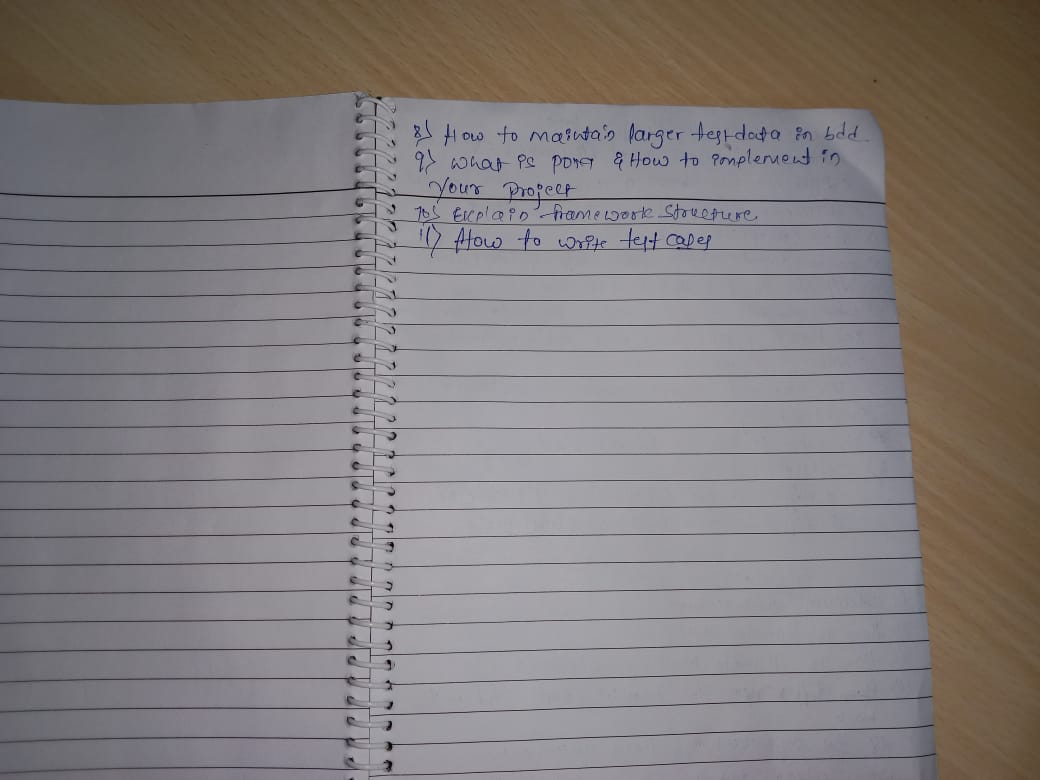 8) How to maintain larger testdata in bdd
9) what is pom & How to implement in
your project
10) Explain framework structure
11) How to write test cases